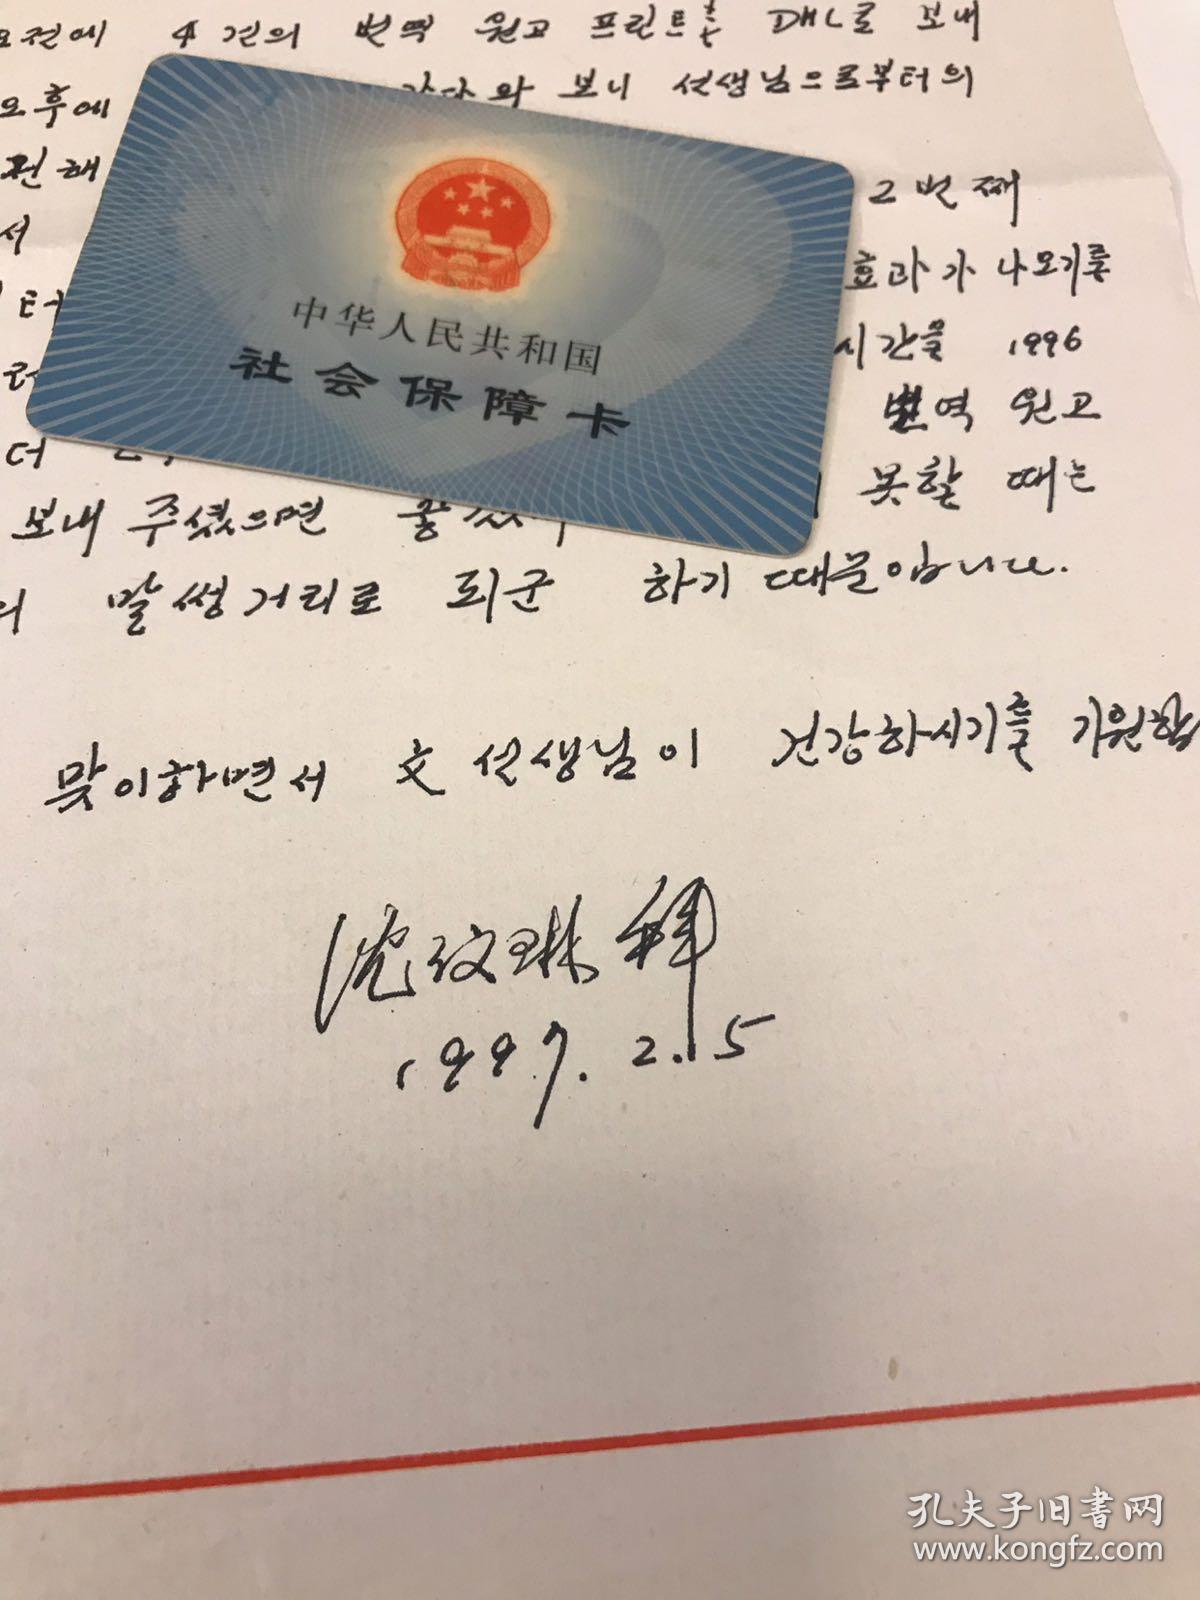 오전에 4건의 번역 원고 프린트를 DHL로 보내
오후에 갔다 와 보니 선생님으로부터의
2번째
서
효과가 나오기를
시간을 1996
번역 원고
더 못할 때는
보내 주셨으면
의 말썽거리로 되군 하기 때문입니다.
맞이하면서 文 선생님이 건강하시기를 기원합
沈玟琳 拜
1997. 2. 15
中华人民共和国
社会保障卡
孔夫子旧书网
www.kongfz.com